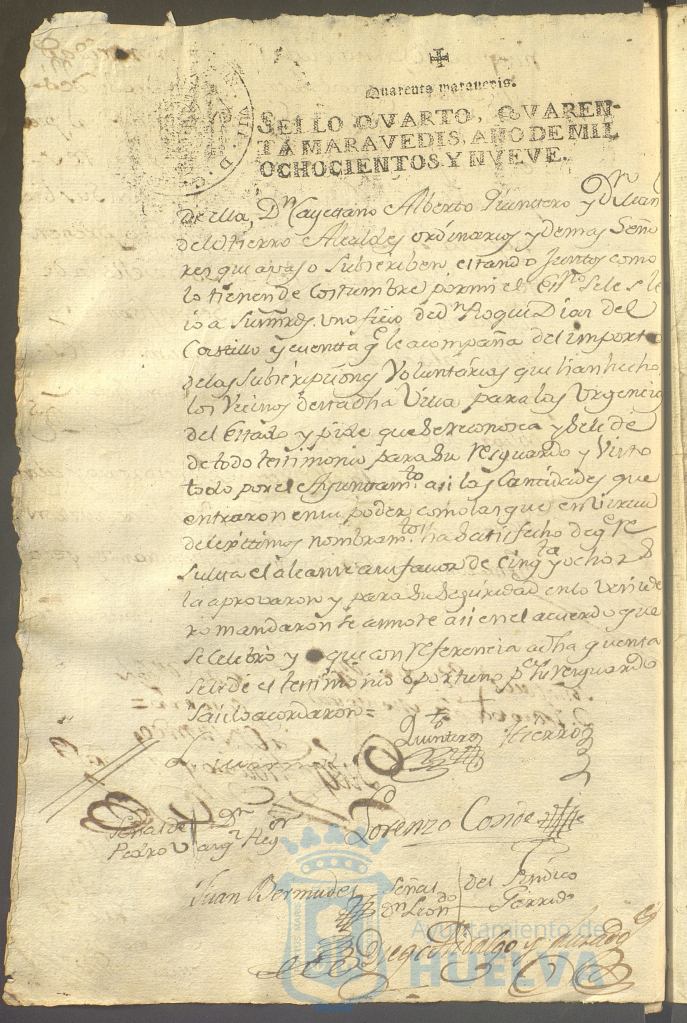 Quarenta maravedis.
SELLO QVARTO, QVAREN-
TA MARAVEDIS, AÑO DE MIL
OCHOCIENTOS Y NVEVE.
de ella, Dn Cayetano Alberto Quintero y Dn Juan
del Hierro Alcaldes ordinarios y demas Seño
res que avajo Subscriben, estando Juntos como
lo tienen de costumbre por mi el Essno Se les le
io a Sus mrds. uno fijo de dn Roque Dias del
Castillo y cuenta qe le acompaña del importe
de las Subscripciones Voluntarias que han hecho
los Vecinos de esta dha Villa para las Urgencias
del Estado y pide que Se reconosca y Se le de
de todo testimonio para Su resguardo y Visto
todo por el Ayuntamto. asi las Cantidades que
entraron en su poder, como las que en virtud
de lexitimos nombramtos ha Satisfecho de qe re
sulta el alcanse a su favor de cinqta y ocho rs
la aprovaron y para Su Seguridad en lo Venide
ro mandaron Se annote asi en el acuerdo que
Se Celebró y que con referencia a dha quenta
Se le dé el testimonio oportuno pa Su resguardo
Asi lo acordaron =
Quintero Hierro
Señal de + Dn
Pedro Regor
Lorenzo Conde
Juan Bermudez
Señal del Sindico
dn Leon Ferrado
Diego Hidalgo y
Ayuntamiento de
HUELVA